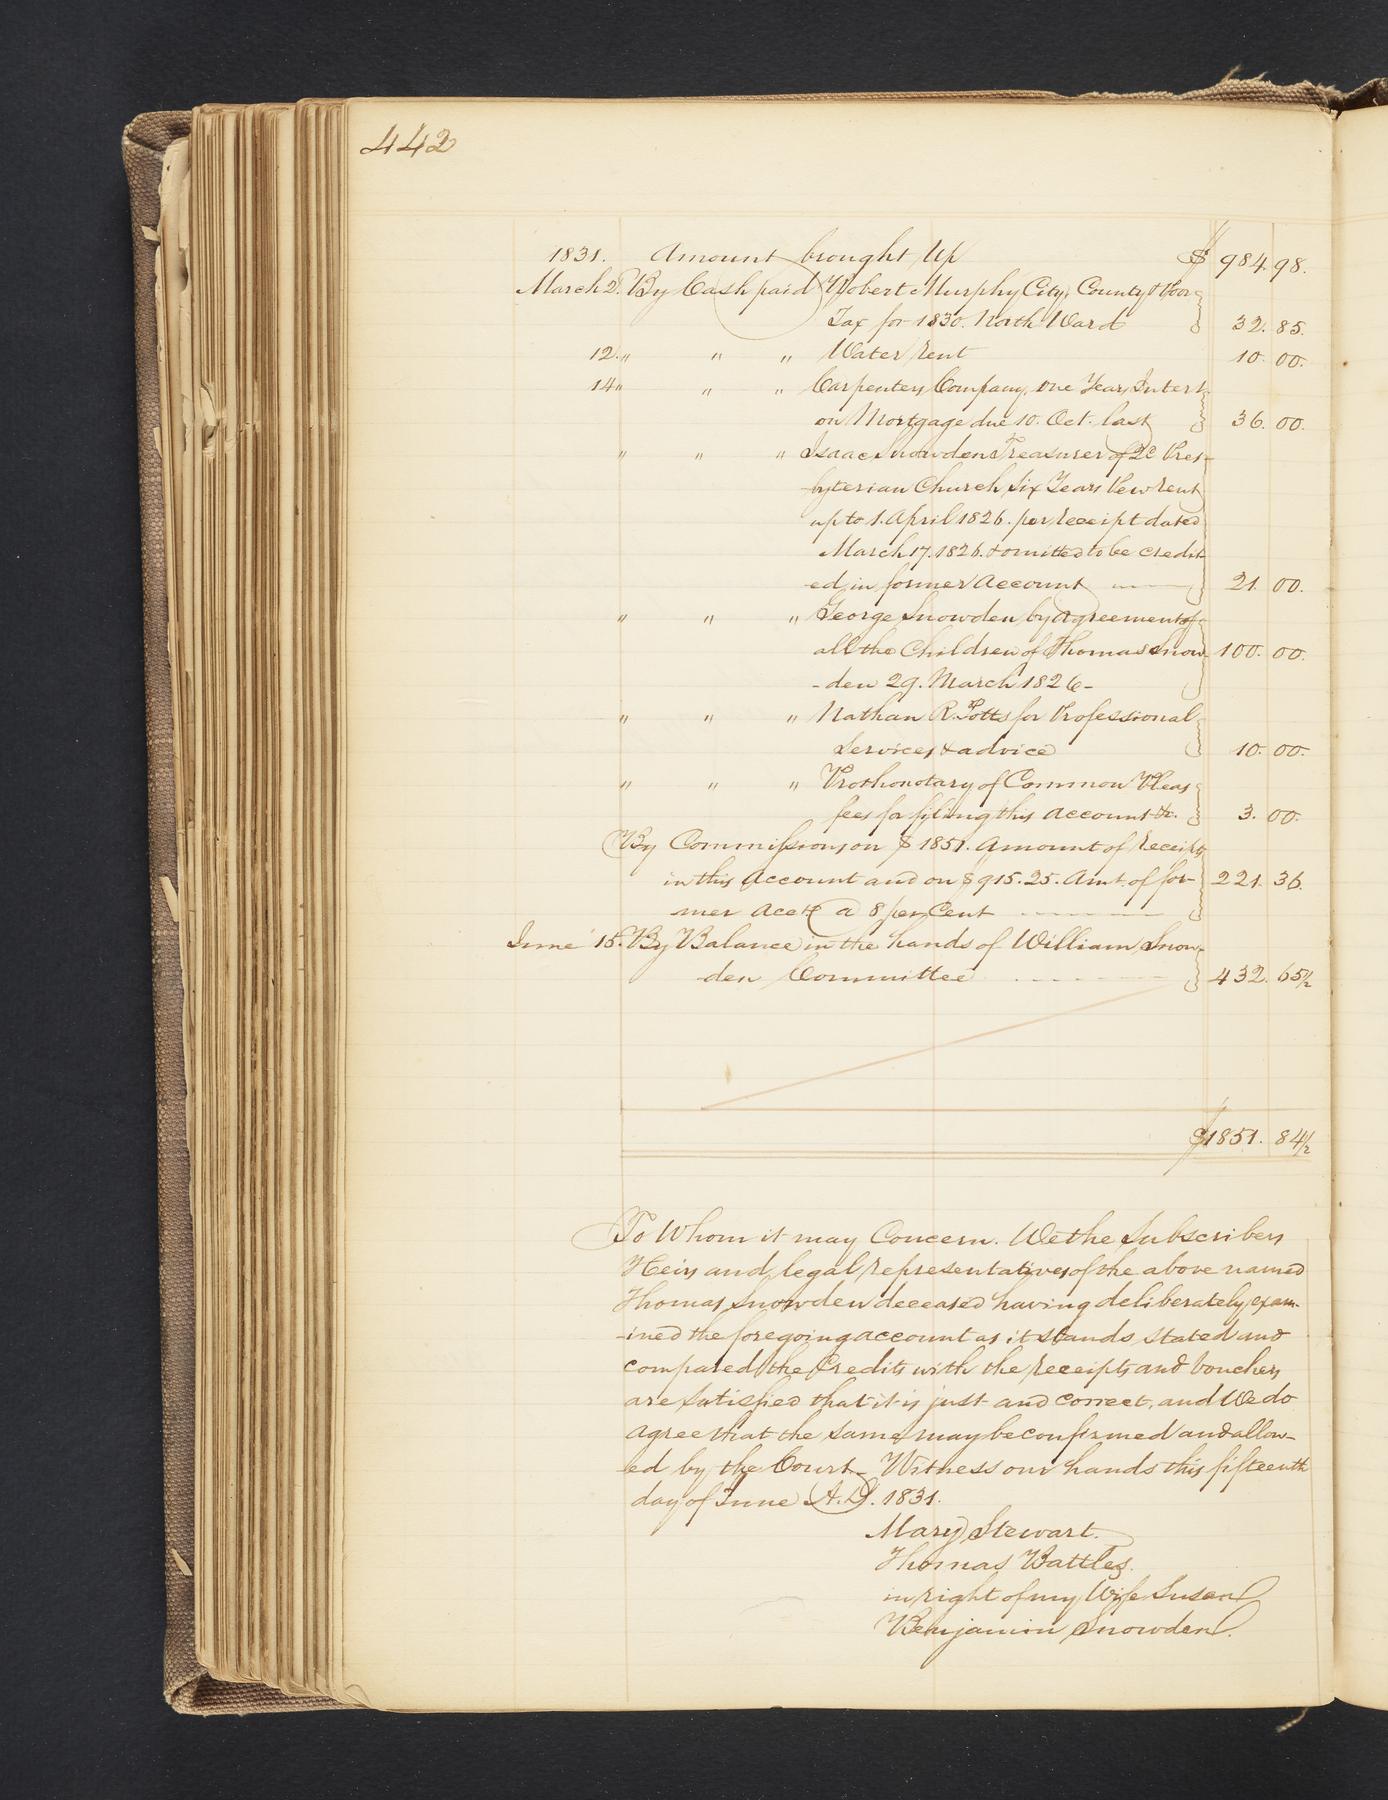 442
1831. Amount brought Up $ 984. 98.
March 2. By Cash paid Robert Murphy City, County & Poor
Tax for 1830. North Ward 32. 85.
12. " " " Water Rent 10. 00.
14 " " " Carpenters Company, one Years Interst
on Mortgage due 10. Oct. last 36. 00.
" " " Isaac Snowden Treasurer of 2d Pres-
byterian Church Six Years Pew Rent
up to 1. April 1826. per receipt dated
March 17. 1826. & omitted to be credit-
ed in former Account 21. 00.
" " " George Snowden, by agreement of
all the Children of Thomas Snow- 100. 00.
-den 29. March 1826-
" " " Nathan R. Potts for Professional
Services & advice 10. 00.
" " " Prothonotary of Common Pleas
fees for filing this account &c. 3. 00.
By Commissions on $1851. Amount of receipts
in this Account and on $915.25. Amt. of for- 221. 36.
mer acct. a 8 per Cent
June 15. By Balance in the hands of William Snow-
den Committee 432. 65½
$1851. 84½
To Whom it may Concern. We the Subscribers
Heirs and legal representatives of the above named
Thomas Snowden deceased having deliberately exam-
-ined the foregoing account as it stands stated and
compared the Credits with the receipts and vouchers
are satisfied that it is just and correct, and We do
agree that the same may be confirmed and allow-
-ed by the Court- Witness our hands this fifteenth
day of June A.D. 1831.
Mary Stewart.
Thomas Battles.
in right of my Wife Susan
Benjamin Snowden.